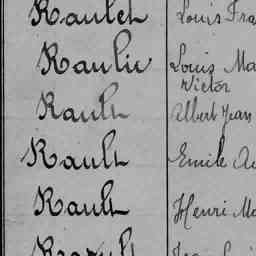 Raulet Louis Fra
Raulic Louis Ma
Victor
Rault Albert Jean
Rault Emile Au
Rault Henri Ma
Rault